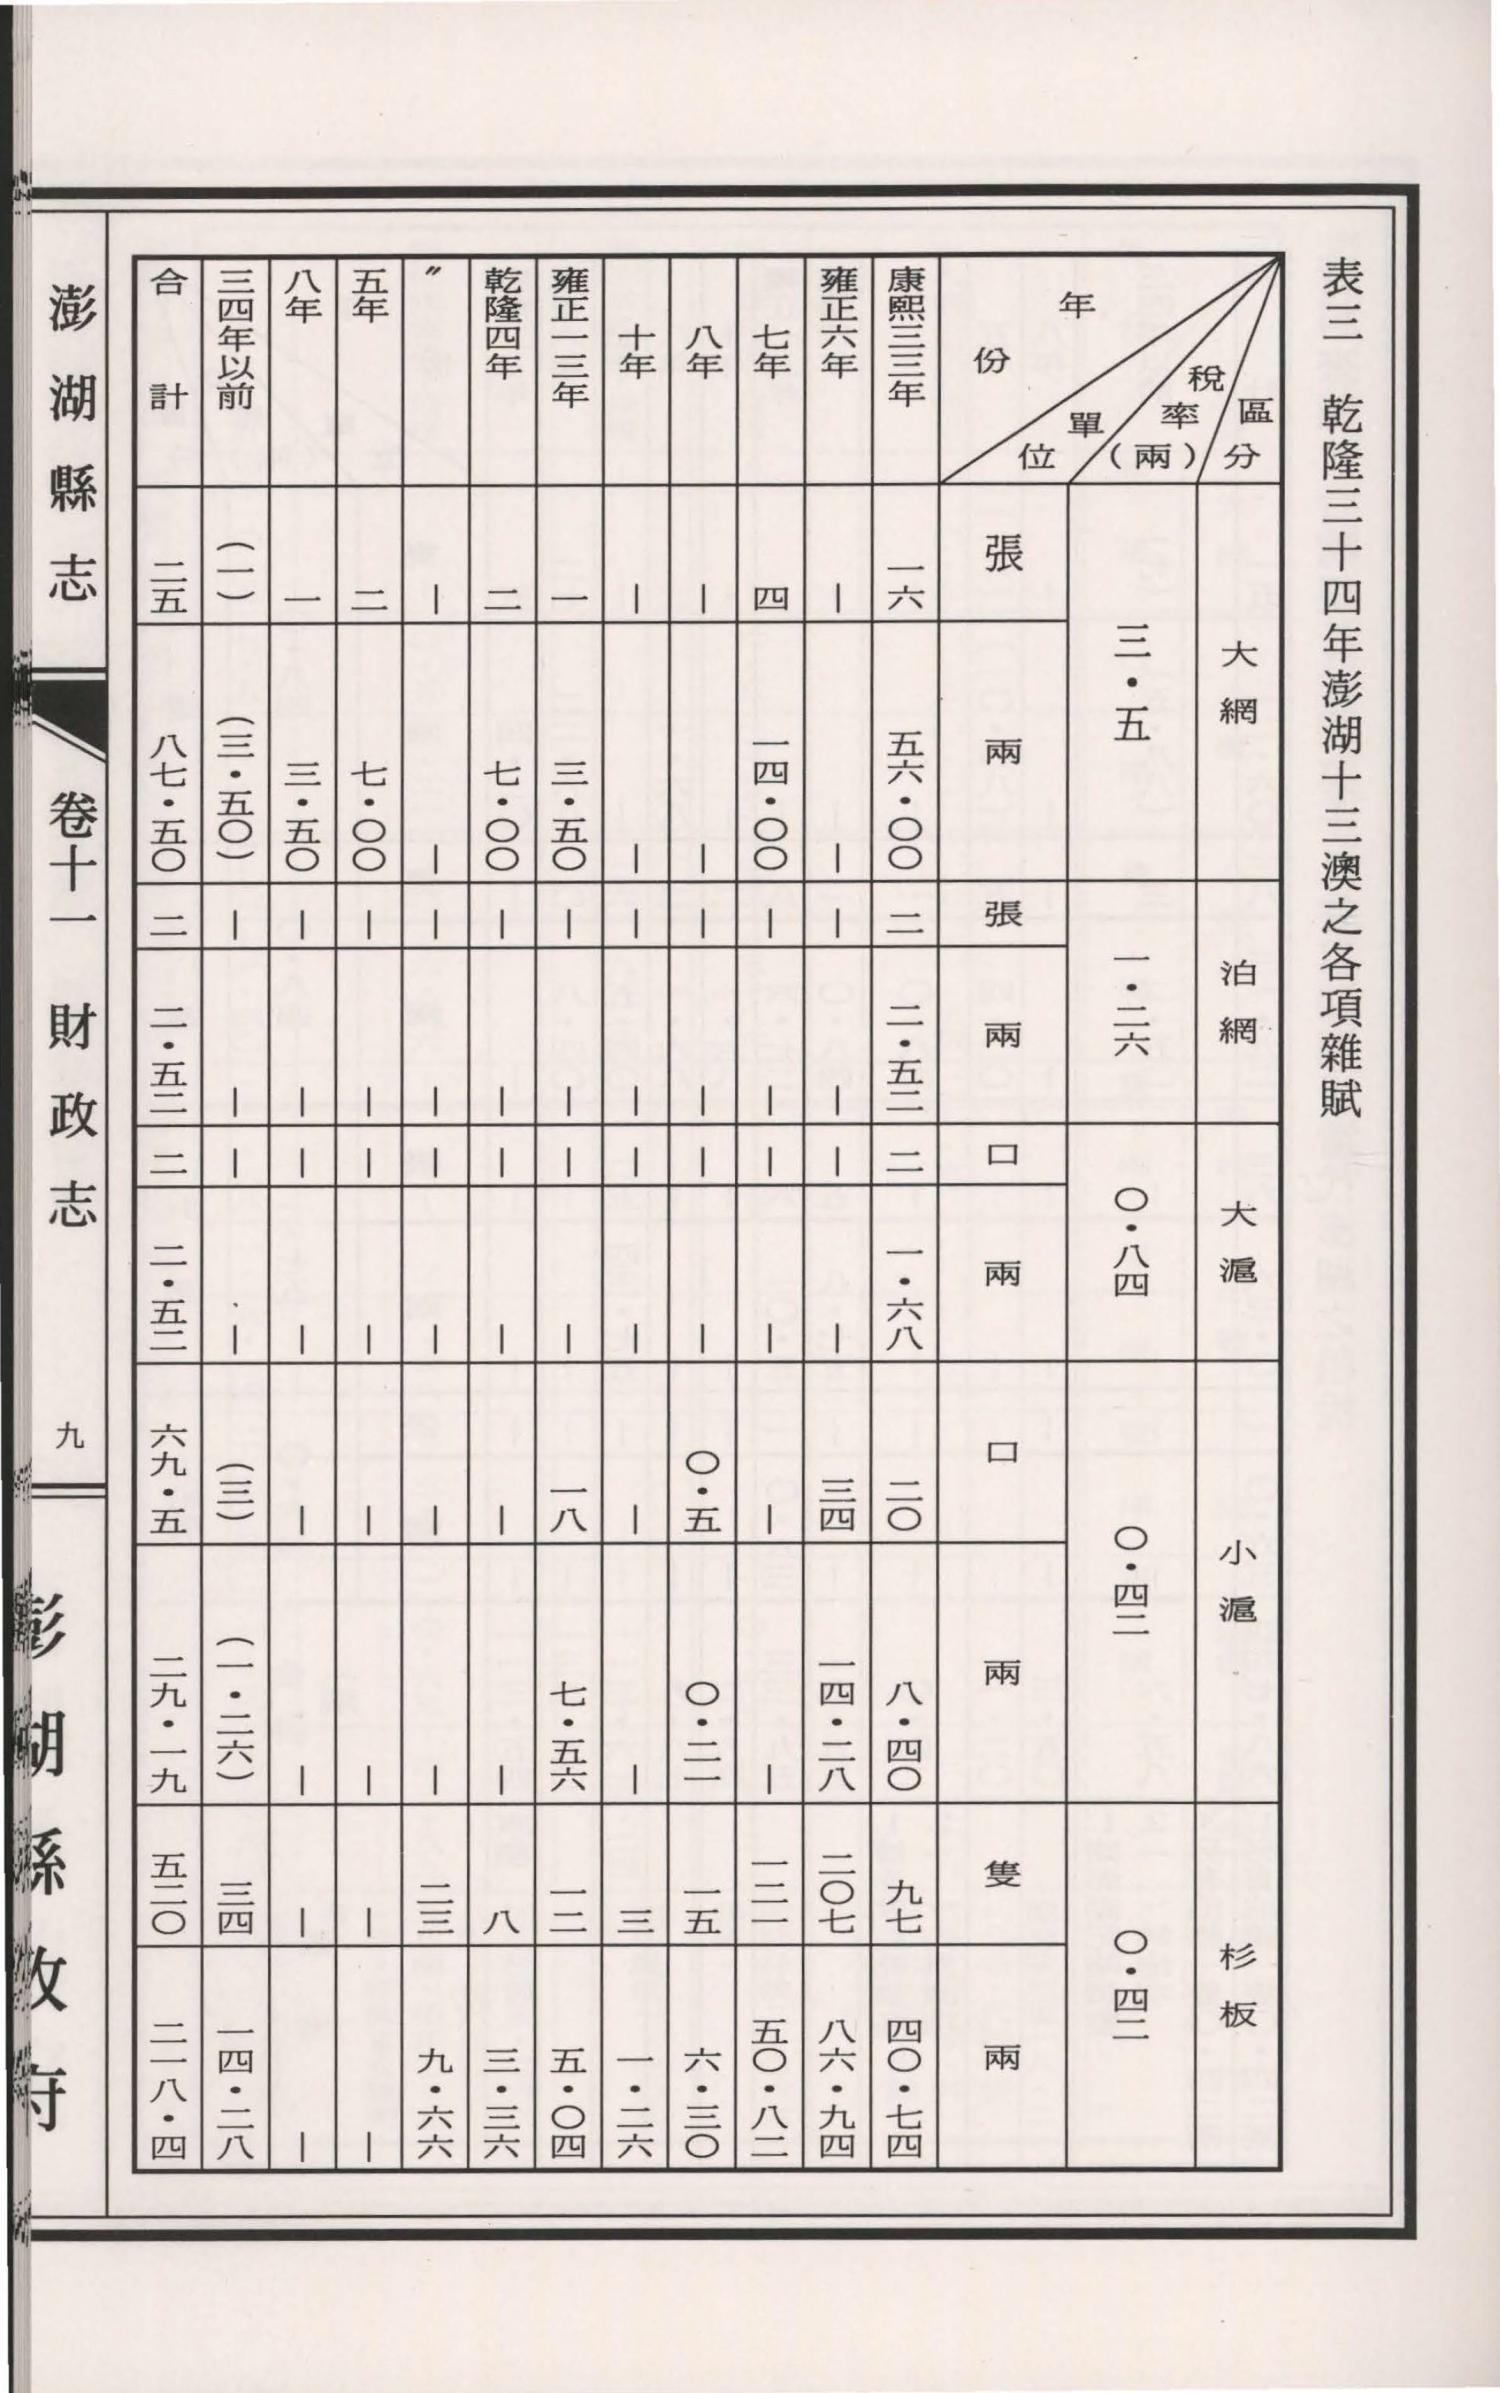 表三　乾隆三十四年澎湖十三澳之各項雜賦
區分　大網　泊網　大滬　小滬　杉板
稅率(兩)　三・五　一・二六　〇・八四　〇・四二　〇・四二
年份　單位　張　兩　張　兩　口　兩　口　兩　隻　兩
康熙三三年　一六　五六・〇〇　二　二・五二　二　一・六八　二〇　八・四〇　九七　四〇・七四
雍正六年　｜　｜　｜　｜　｜　｜　三四　一四・二八　二〇七　八六・九四
七年　四　一四・〇〇　｜　｜　｜　｜　｜　｜　一二一　五〇・八二
八年　｜　｜　｜　｜　｜　｜　〇・五　〇・二一　一五　六・三〇
十年　｜　｜　｜　｜　｜　｜　｜　｜　三　一・二六
雍正一三年　一　三・五〇　｜　｜　｜　｜　一八　七・五六　一二　五・〇四
乾隆四年　二　七・〇〇　｜　｜　｜　｜　｜　｜　八　三・三六
〃　｜　｜　｜　｜　｜　｜　｜　｜　二三　九・六六
五年　二　七・〇〇　｜　｜　｜　｜　｜　｜　｜　｜
八年　一　三・五〇　｜　｜　｜　｜　｜　｜　｜　｜
三四年以前　(一)　(三・五〇)　｜　｜　｜　｜　(三)　(一・二六)　三四　一四・二八
合計　二五　八七・五〇　二　二・五二　二　二・五二　六九・五　二九・一九　五二〇　二一八・四
澎湖縣志　卷十一　財政志　九　澎湖縣政府